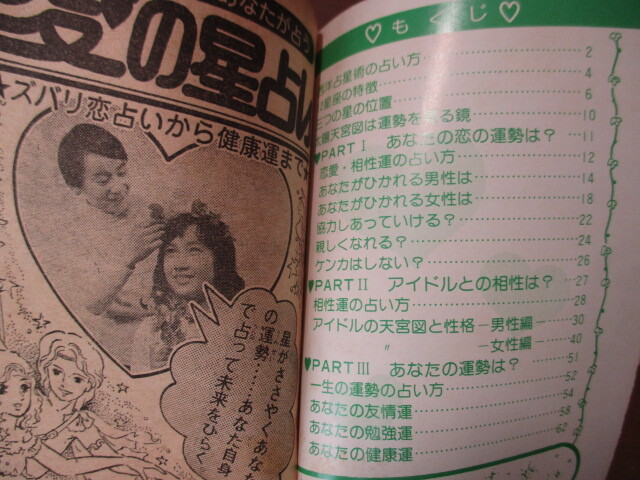 あなたが占う
愛の星占い
★ズバリ恋占いから健康運まで★
星がささやくあなた
の運勢……あなた自身
で占って未来をひらく
♡もくじ♡
占星術の占い方 2
星座の特徴 4
三つの星の位置 6
天宮図は運勢を見る鏡 10
♥PARTⅠ あなたの恋の運勢は? 11
恋愛・相性運の占い方 12
あなたがひかれる男性は 14
あなたがひかれる女性は 18
協力しあっていける? 22
親しくなれる? 24
ケンカはしない? 26
♥PARTⅡ アイドルとの相性は? 27
相性運の占い方 28
アイドルの天宮図と性格−男性編− 30
〃 −女性編− 40
♥PARTⅢ あなたの運勢は? 51
一生の運勢の占い方 52
あなたの友情運 54
あなたの勉強運 58
あなたの健康運 62